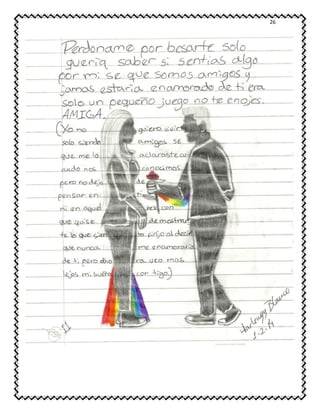 26
Perdoname por besarte solo
queria saber si sentias algo
por mi se que somos amigos y
jamas estaria enamorado de ti era
solo un pequeño juego no te enojes.
AMIGA.
(Yo no quiero
solo siendo amigos se
que me lo aclaraste cu
ando nos conocimos
pero no dejo de
pensar en ti
ni en aquel con
que quise demostrar
te lo que al decir
que nunca me enamoraria
de ti pero otra vez mas
lejos mi sueño con tigo)
II
Blanco